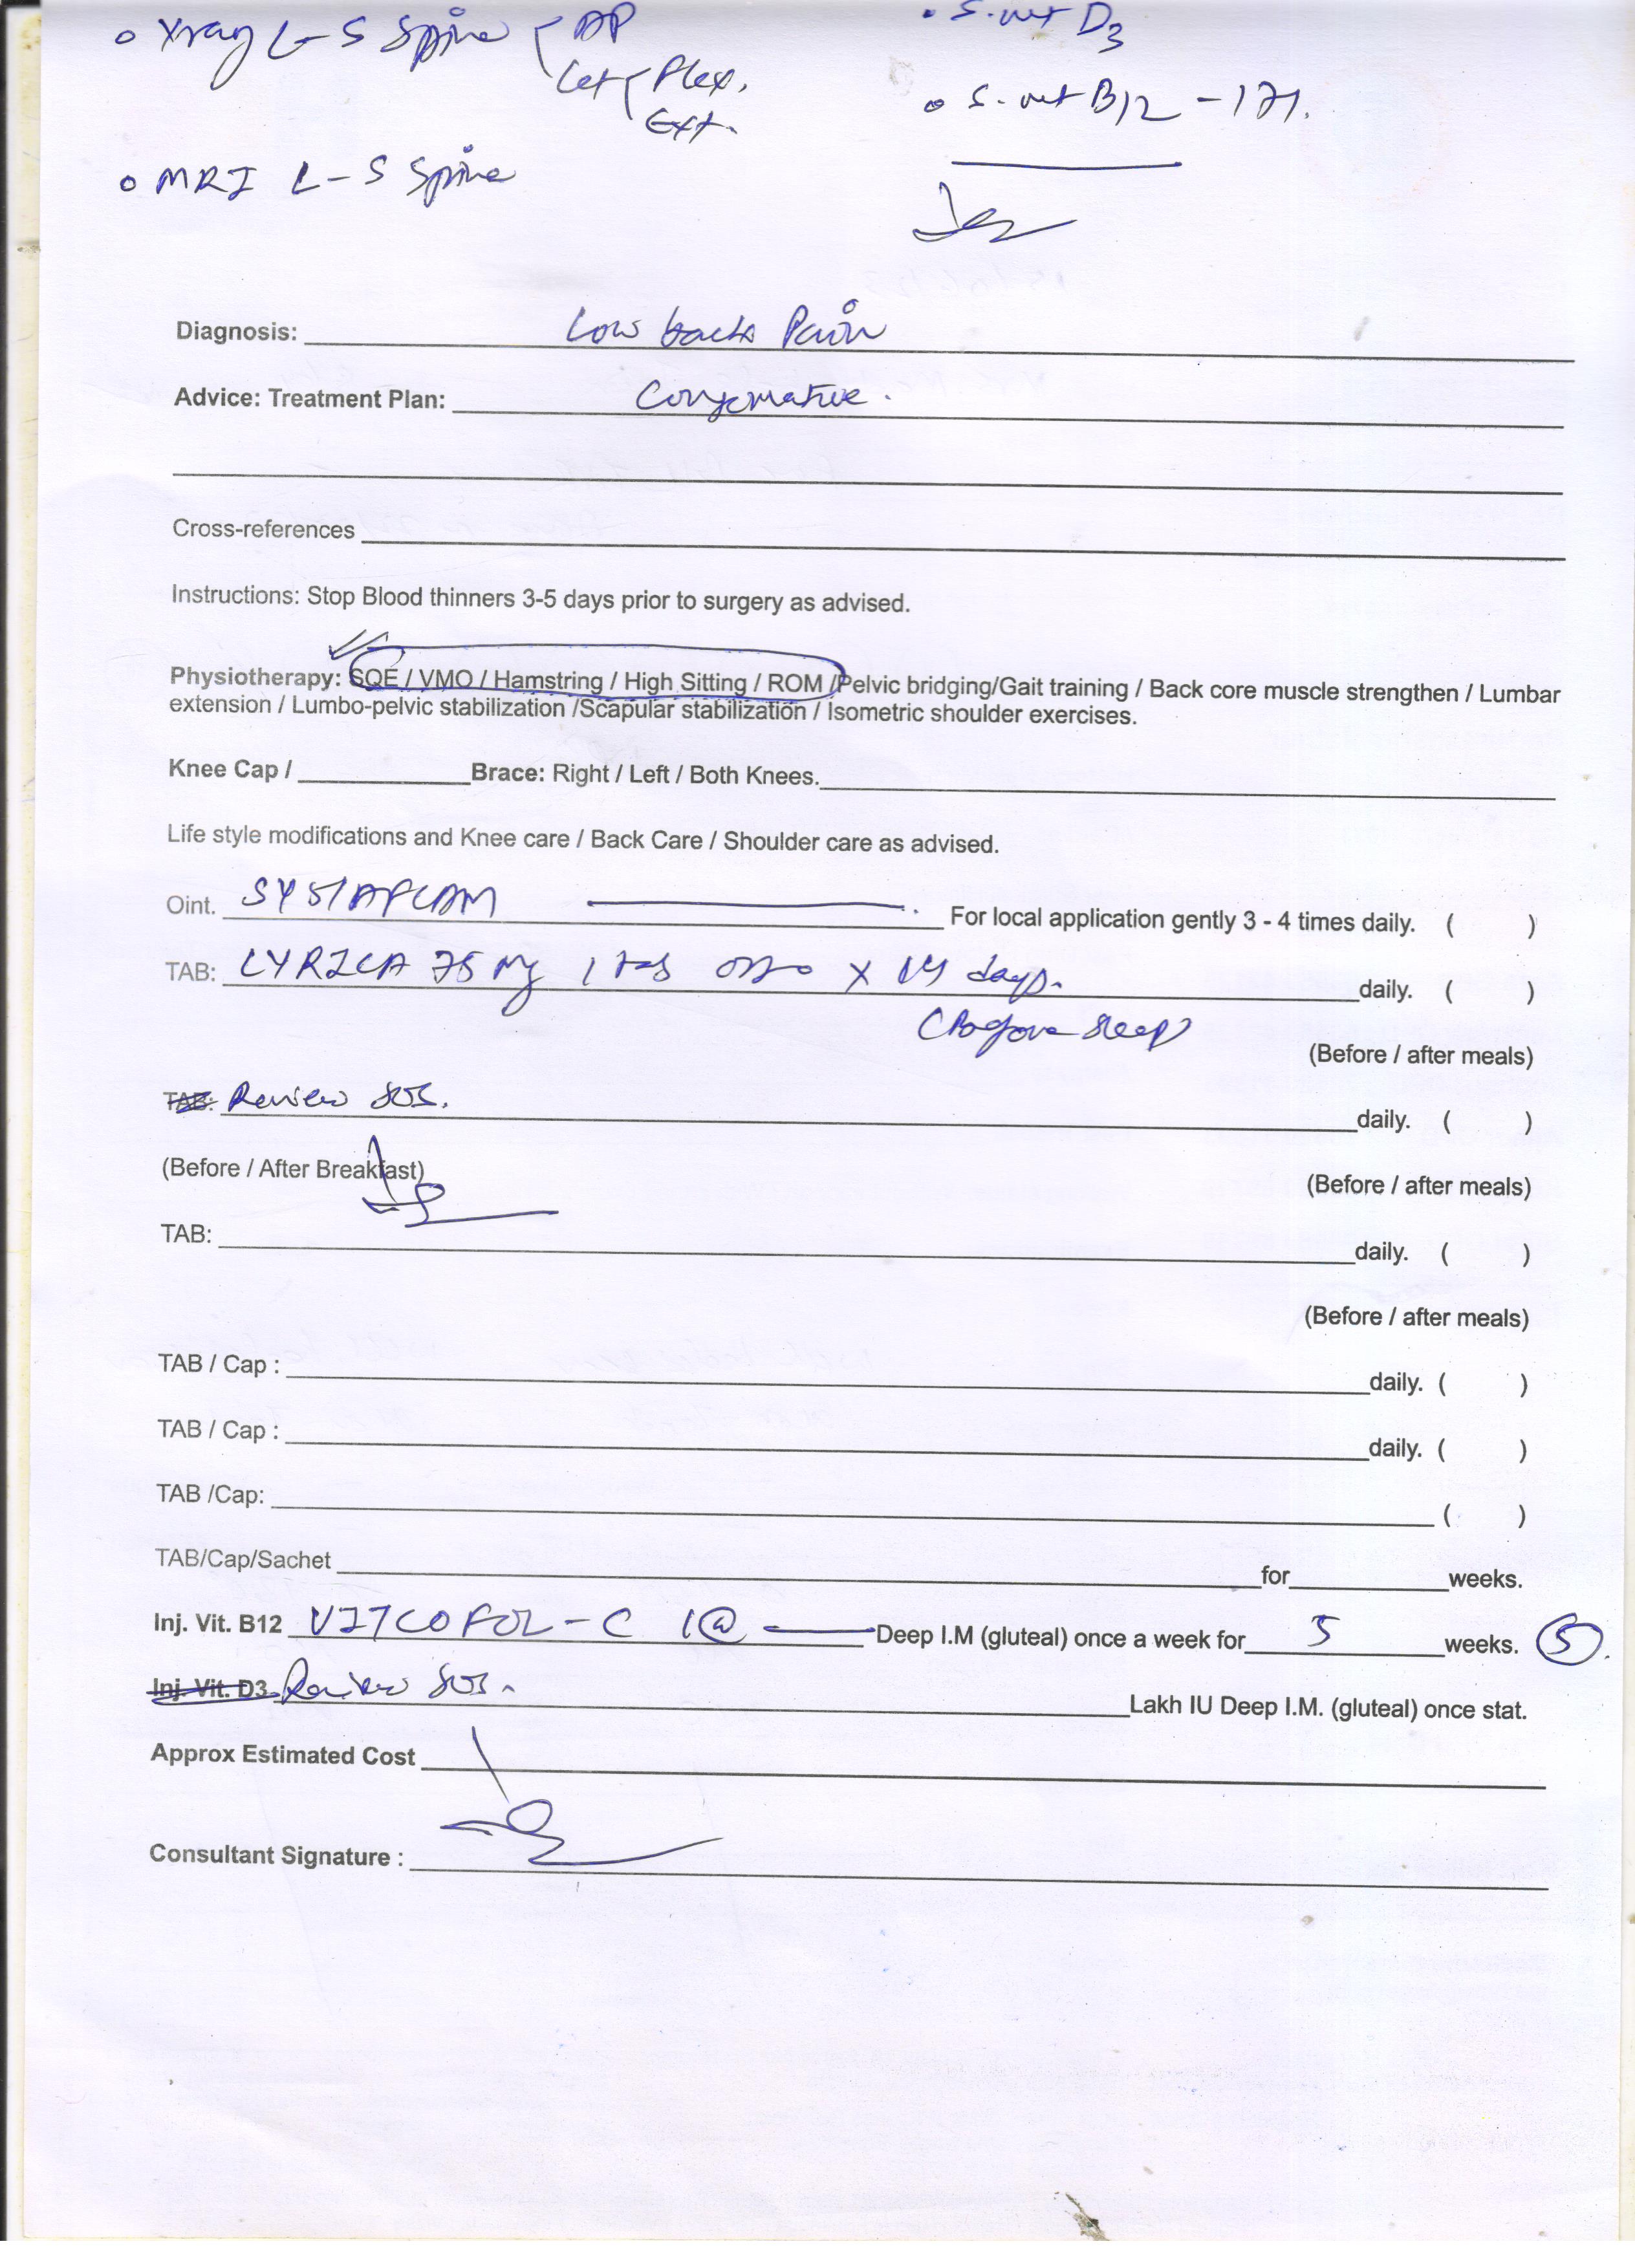 • Xray L-S Spine AP
Lat Flex.
Ext.
• MRI L-S Spine
• S. vit D3
• S. vit B12 - 171.
Diagnosis: Low back Pain
Advice: Treatment Plan: Conservative.
Cross-references
Instructions: Stop Blood thinners 3-5 days prior to surgery as advised.
Physiotherapy: SQE / VMO / Hamstring / High Sitting / ROM /Pelvic bridging/Gait training / Back core muscle strengthen / Lumbar
extension / Lumbo-pelvic stabilization /Scapular stabilization / Isometric shoulder exercises.
Knee Cap / Brace: Right / Left / Both Knees.
Life style modifications and Knee care / Back Care / Shoulder care as advised.
Oint. For local application gently 3 - 4 times daily. ( )
TAB: LYRICA 75 mg 1 tab x 14 days. daily. ( )
(Before sleep)
(Before / after meals)
TAB: Review SOS. daily. ( )
(Before / After Breakfast) (Before / after meals)
TAB: daily. ( )
(Before / after meals)
TAB / Cap : daily. ( )
TAB / Cap : daily. ( )
TAB /Cap: ( )
TAB/Cap/Sachet for weeks.
Inj. Vit. B12 VITCOFOL-C 1@ Deep I.M (gluteal) once a week for 5 weeks. 5
Inj. Vit. D3 Review SOS. Lakh IU Deep I.M. (gluteal) once stat.
Approx Estimated Cost
Consultant Signature :